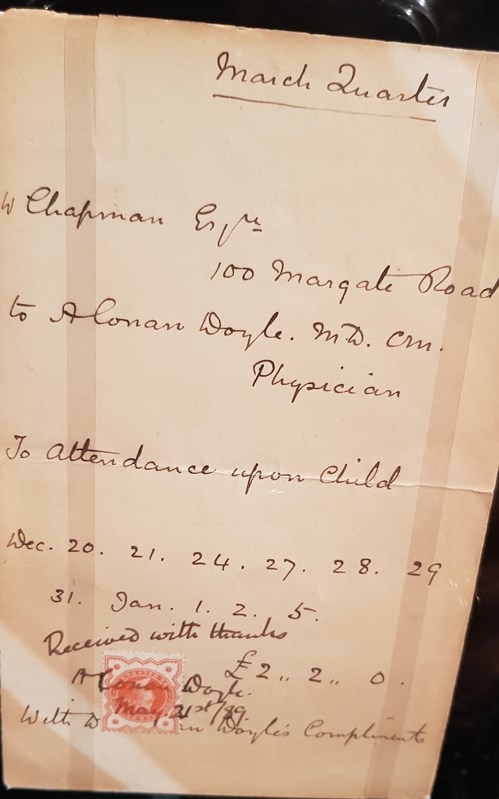 March Quarter
W Chapman Esqre
100 Margate Road
to A Conan Doyle. M.D. C.M.
Physician
To attendance upon Child
Dec. 20. 21. 24. 27. 28. 29
31. Jan. 1. 2. 5.
Received with thanks
£2 " 2 " 0.
A Conan Doyle.
May 21st/89
With Doyle's Compliments